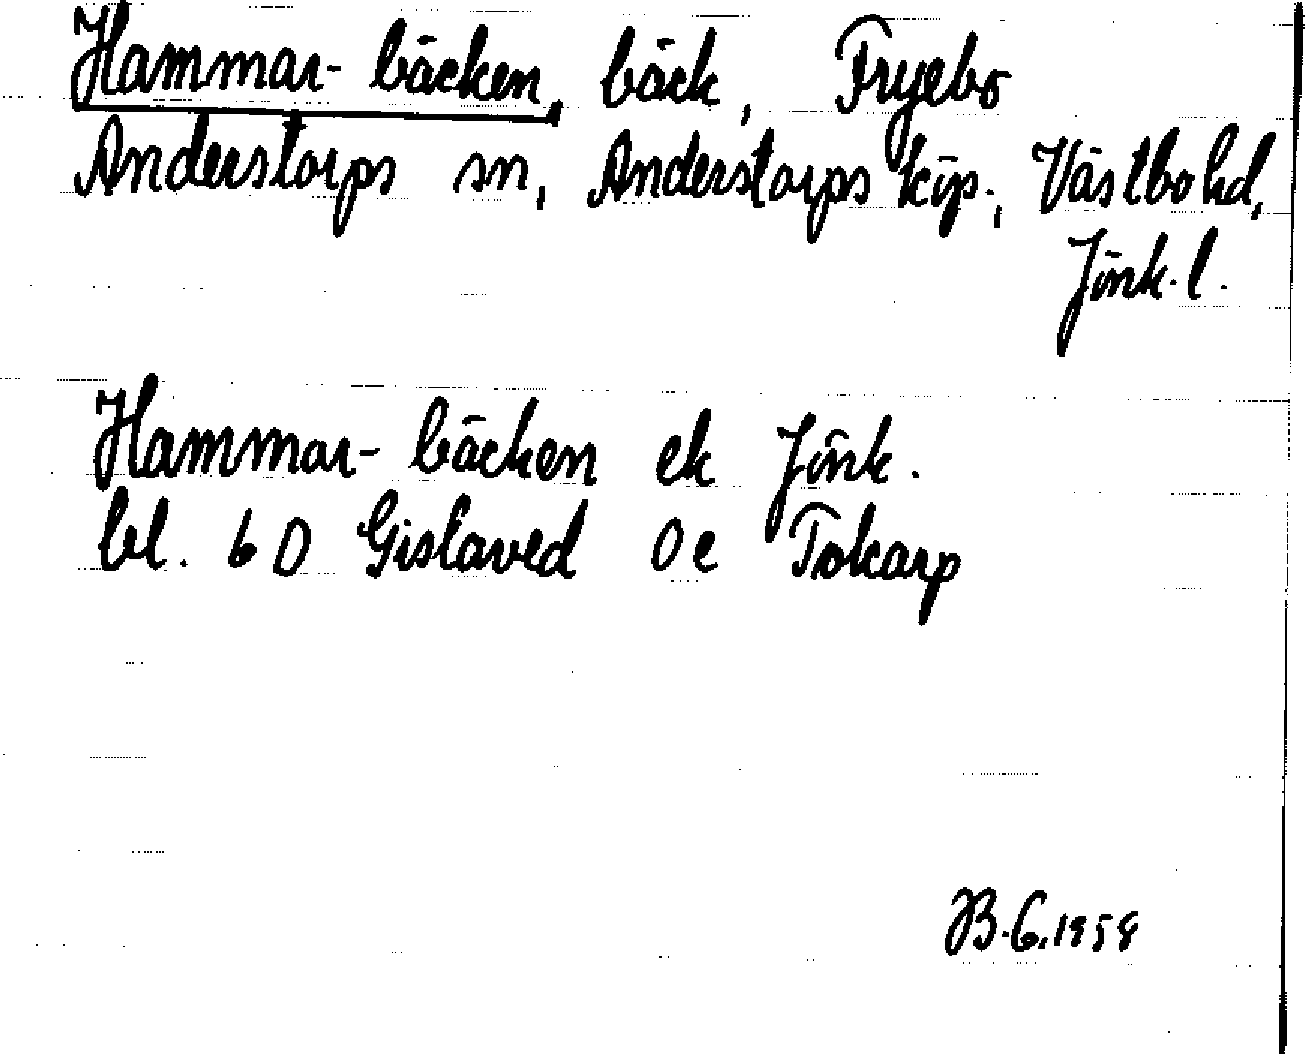 Hammar- bäcken, bäck, Fryebo
Anderstorps sn, Anderstorps köp., Västbo hd,
Jönk. l.
Hammar- bäcken ek Jönk.
bl. 6 D Gislaved 0 e Tokarp
B.G. 1958